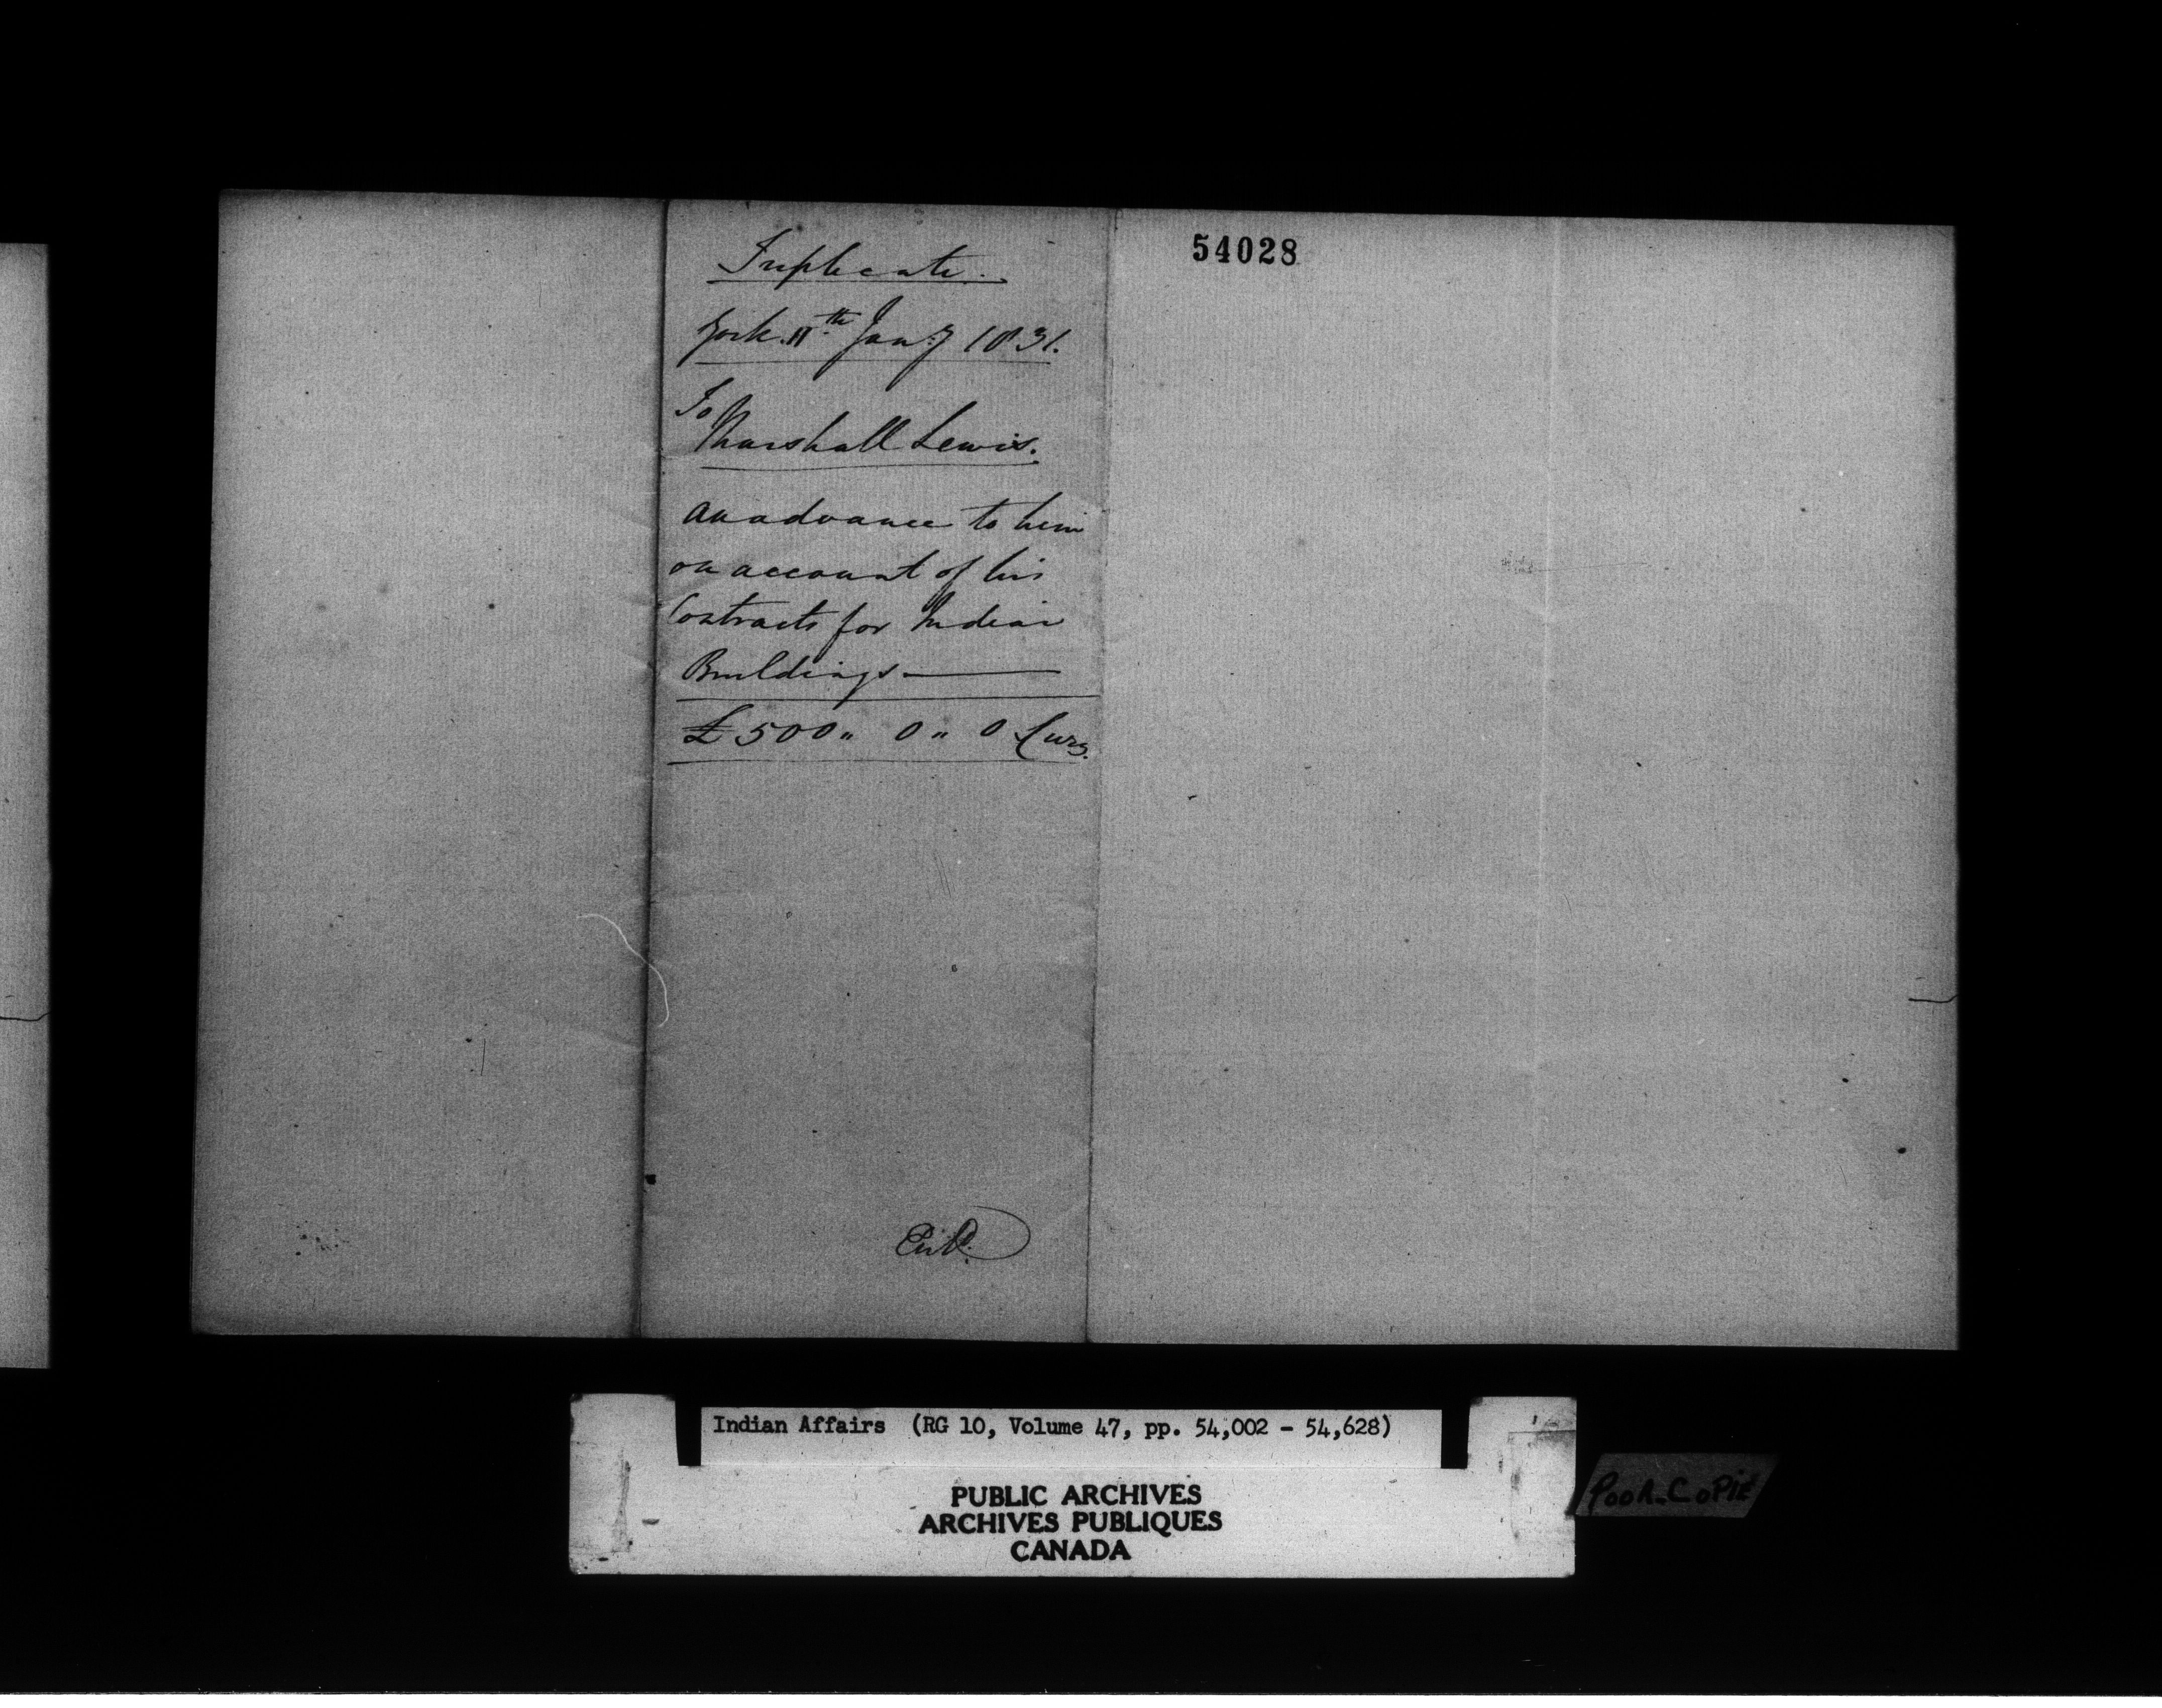 Triplicate.
York 11th Jany 1831.
To
Marshall Lewis.
an advance to him
on account of his
Contracts for Indian
Buildings
£500 " 0 " 0 Curcy.
54028
Indian Affairs (RG 10, Volume 47, pp. 54,002 - 54,628)
PUBLIC ARCHIVES
ARCHIVES PUBLIQUES
CANADA
POOR COPIE